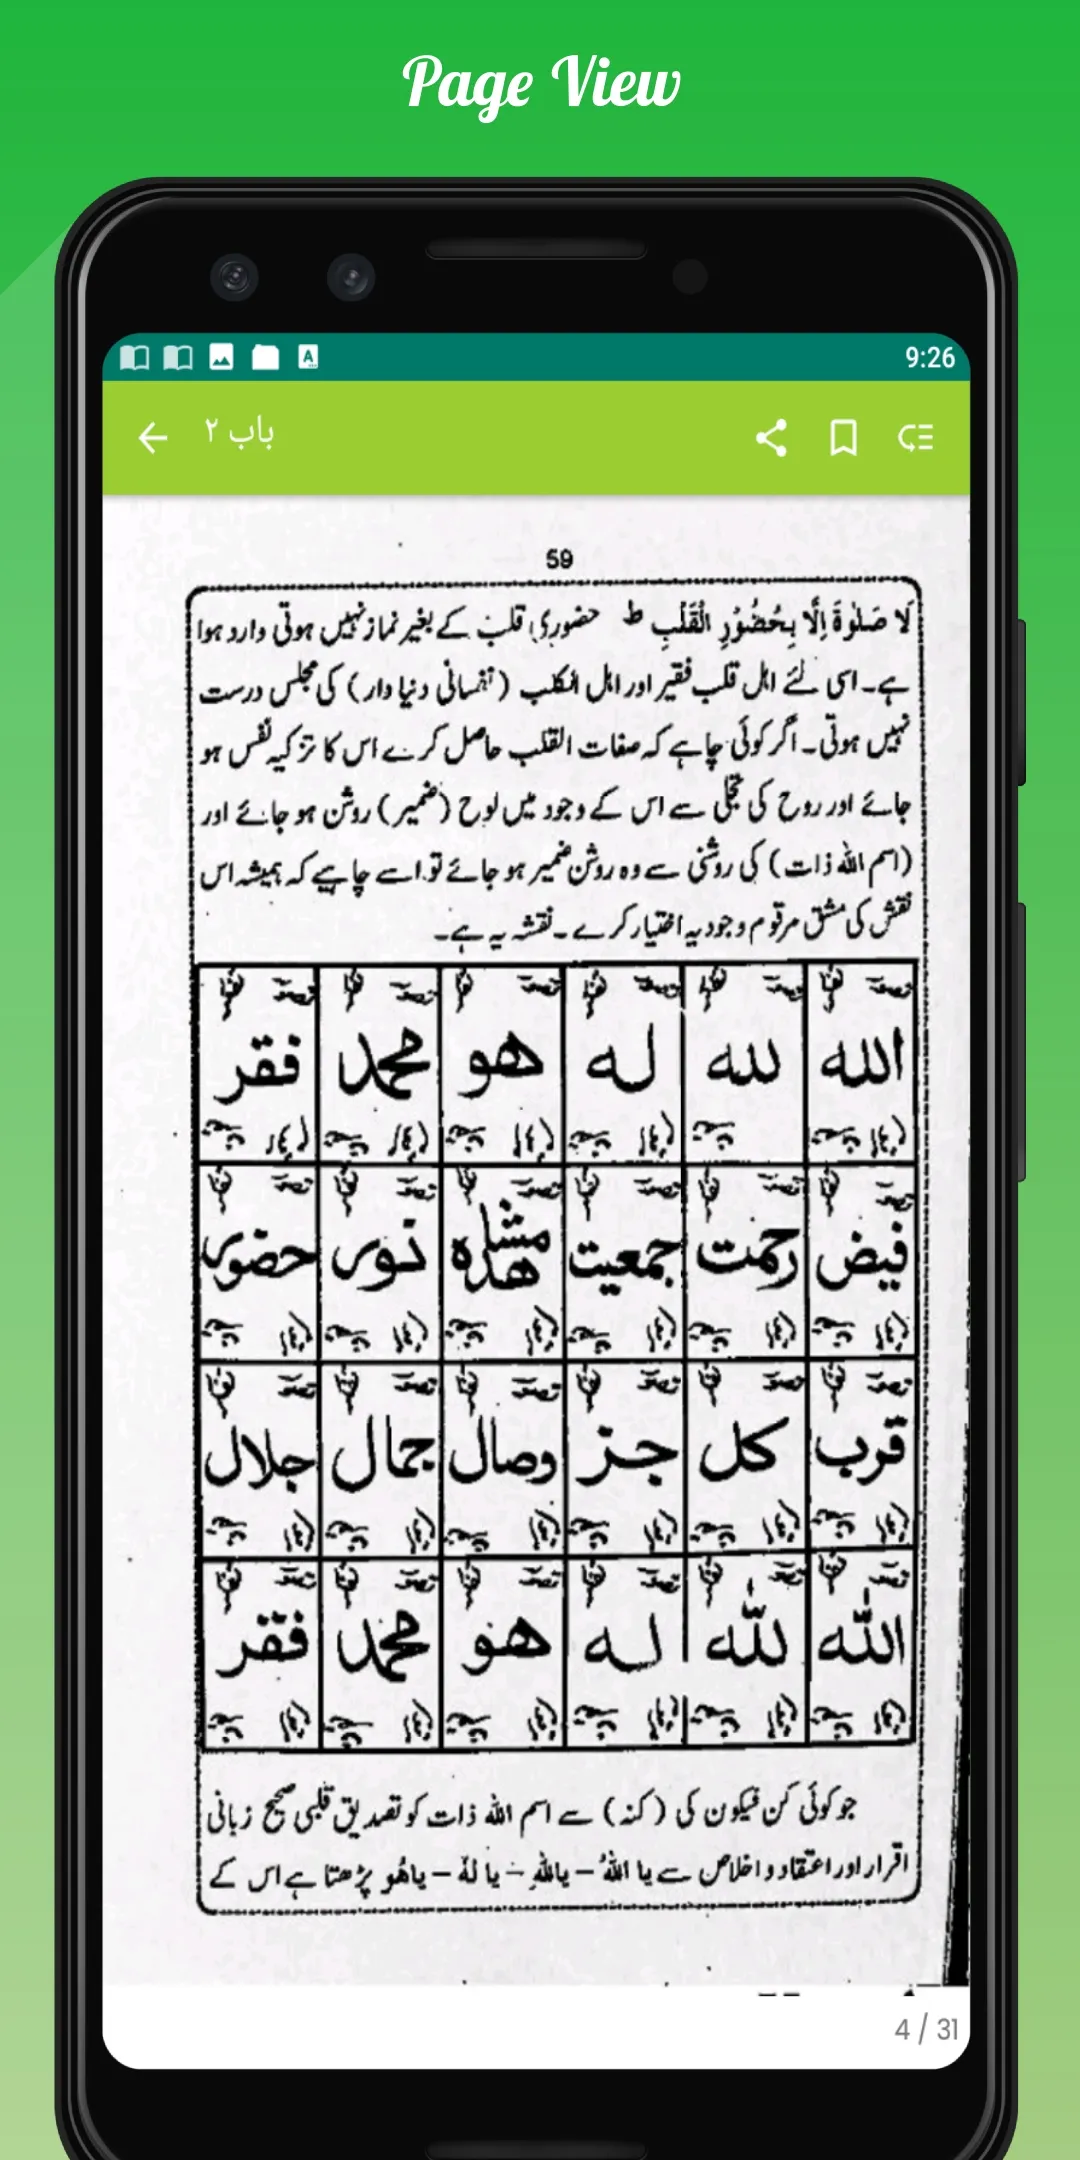 Page View
9:26
باب ۲
59
لَا صَلٰوةَ اِلَّا بِحُضُوْرِ الْقَلْبِ ط حضوری قلب کے بغیر نماز نہیں ہوتی وارد ہوا
ہے۔ اسی لئے اہل قلب فقیر اور اہل الکلب (نفسانی دنیا دار) کی مجلس درست
نہیں ہوتی۔ اگر کوئی چاہے کہ صفات القلب حاصل کرے اس کا تزکیہ نفس ہو
جائے اور روح کی تجلی سے اس کے وجود میں لوح (ضمیر) روشن ہو جائے اور
(اسم اللہ ذات) کی روشنی سے وہ روشن ضمیر ہو جائے تو اسے چاہیے کہ ہمیشہ اس
نقش کی مشق مرقوم وجودیہ اختیار کرے۔ نقشہ یہ ہے۔
الله لله له هو محمد فقر
فیض رحمت جمعیت مشاهده نور حضور
قرب کل جز وصال جمال جلال
اللّٰه للّٰه له هو محمد فقر
جو کوئی کن فیکون کی (کنہ) سے اسم اللہ ذات کو تصدیق قلبی صحیح زبانی
اقرار اور اعتقاد و اخلاص سے یا اللهُ – یاللهِ – یا لهٗ – یاهُو پڑھتا ہے اس کے
4 / 31